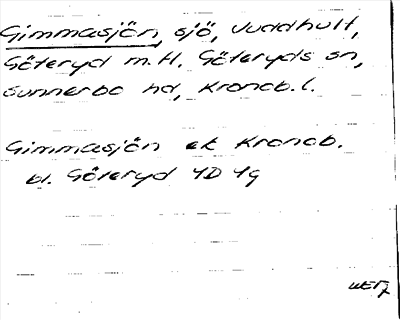 Gimmasjön, sjö, Juddhult,
Göteryd m.fl. Göteryds sn,
Sunnerbo hd, Kronob.l.
Gimmasjön ek Kronob.
bl. Göteryd 4D 4g